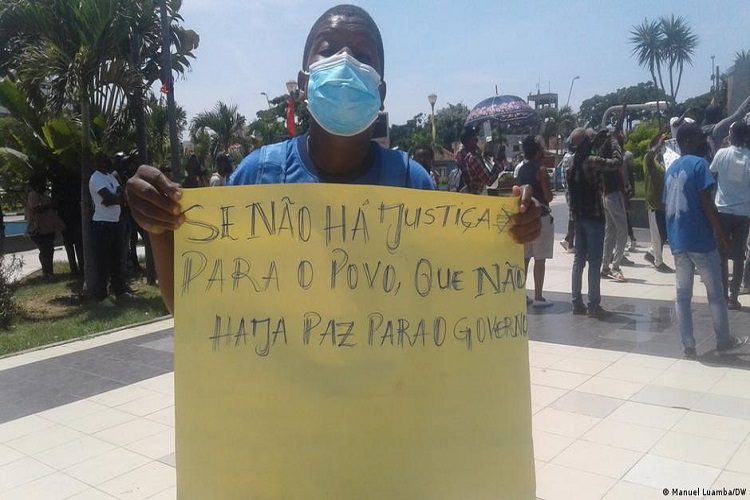 SE NÃO HÁ JUSTIÇA
PARA O POVO, QUE NÃO
HAJA PAZ PARA O GOVERNO
© Manuel Luamba/DW